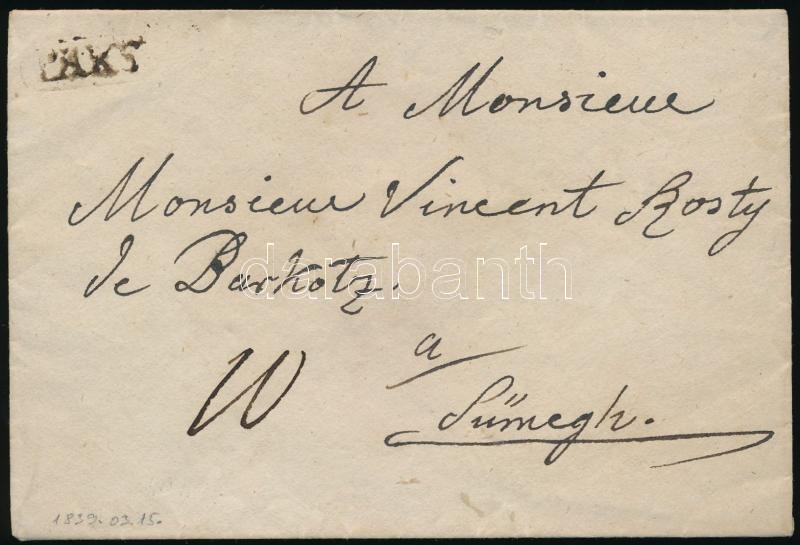 PAKS
A Monsieur
Monsieur Vincent Rosty
de Barkotz.
darabanth
10
a
Sümegh.
1839.03.15.